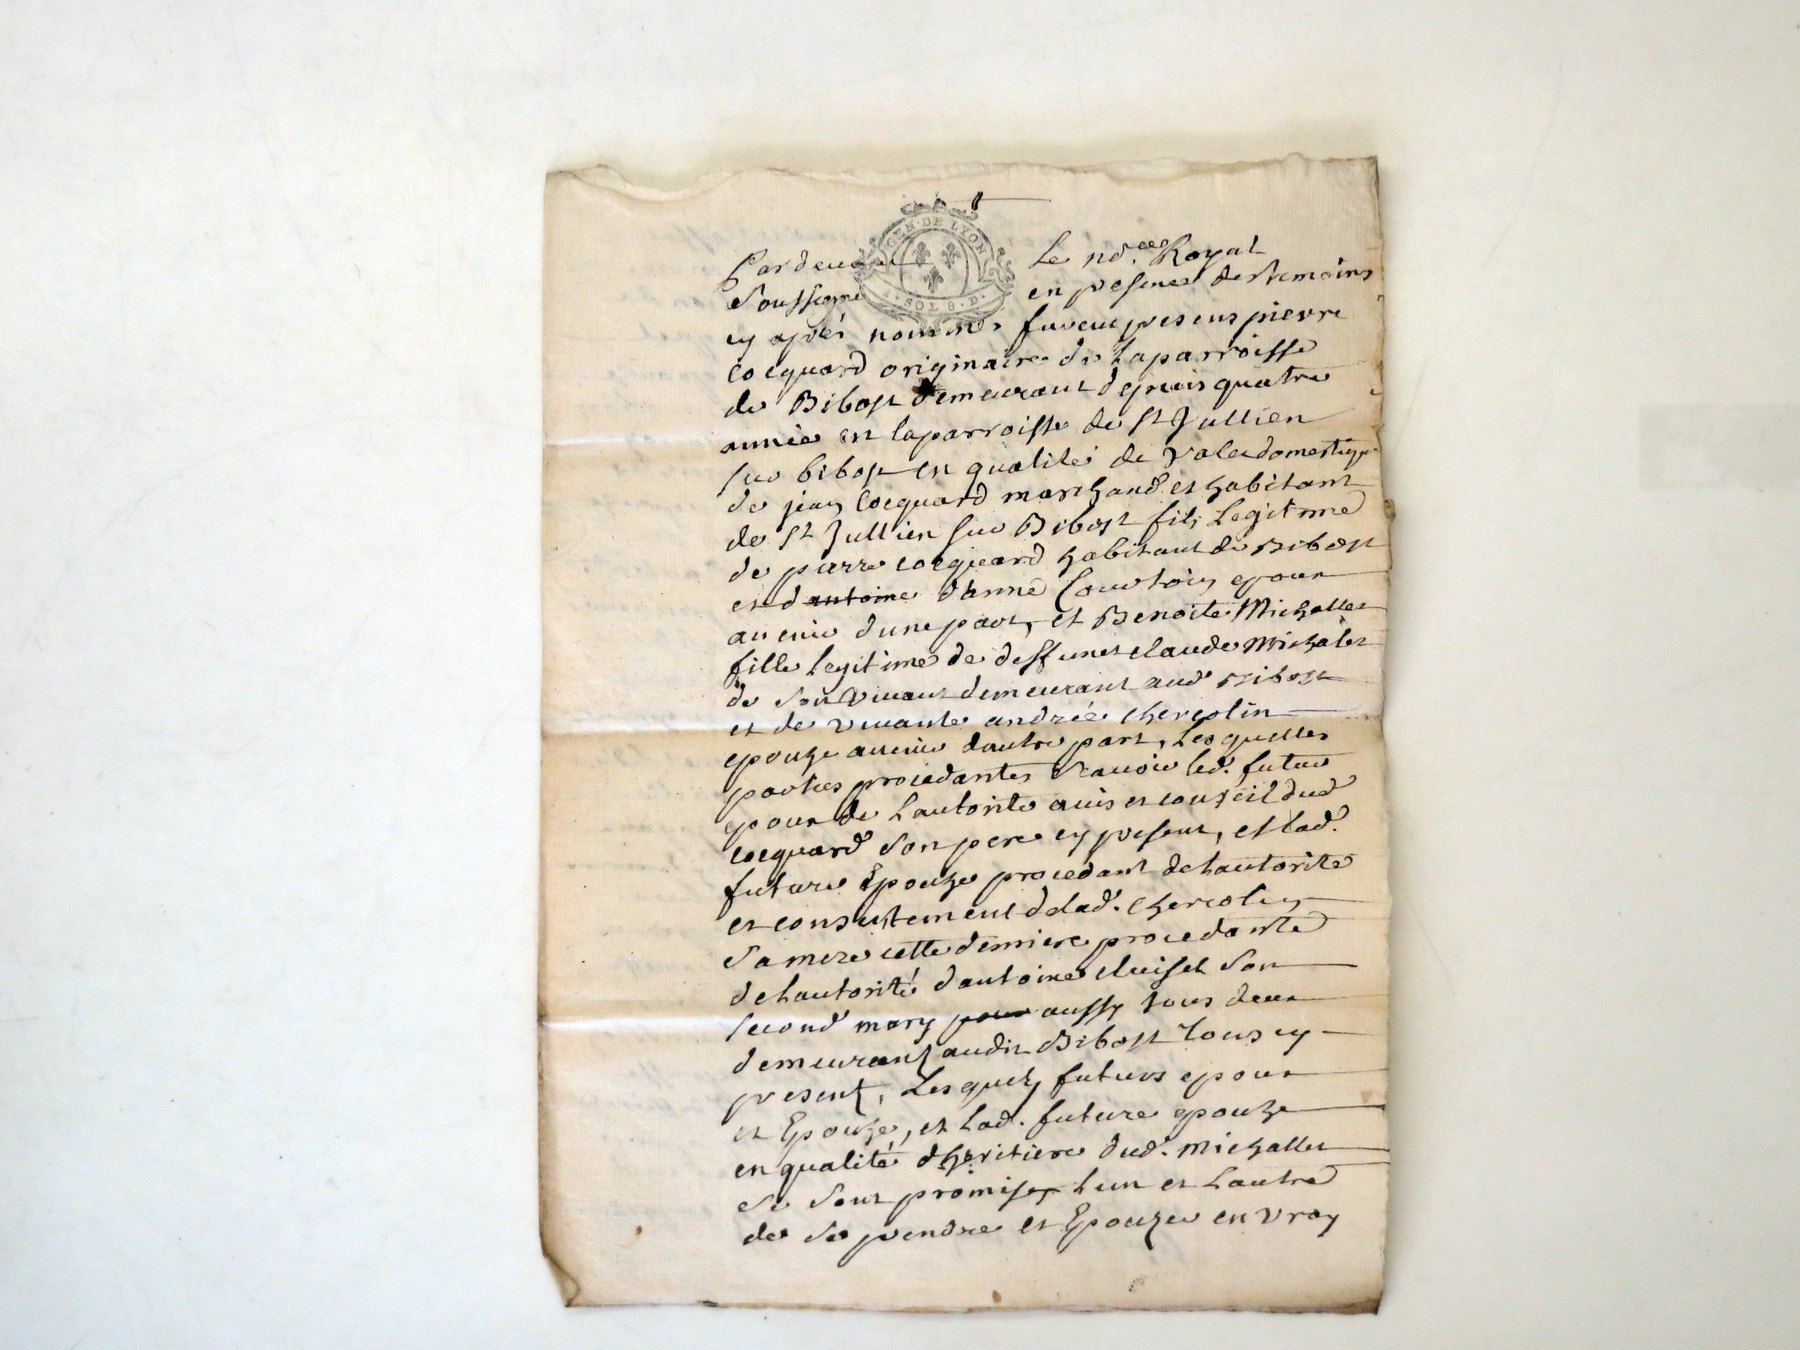 GEN·DE LYON
SOLS·D·
Pardeuant Le no.re Royal
Soussigné en presence des temoins
cy aprés nommés furent presens pierre
Cocquard originaire de la parroisse
de Bibost demeurant depuis quatre
année en laparroisse de St Jullien
sur bibost en qualité de valet domestique
de jean Cocquard marchand et habitant
de St Jullien sur Bibost fils Legitime
de pierre cocquard habitant de Bibost
et d antoine d'anne Courtois epoux
auenir dune part, et Benoite Michallet
fille legitime de deffunct claude Michalet
de son viuant demeurant aud Bibost
et de viuante andrée chercotin
epouze auenir dautre part, Lesquelles
parties procedantes sçauoir led. futur
epoux de Lautorité auis et conseil dud
cocquard son pere cy present, et lad.
future Epouze procedant de hautorité
et consentement delad. chercotin
sa mere cette derniere procedante
de hautorité dantoine cluisel son
second mary pour aussy tous deux
demeurants audit Bibost tous cy
present, Lesquels futurs epoux
et Epouze, et lad. future epouze
en qualité dheritiere dud. Michallet
se sont promises lun et Lautre
de se prendre et Epouzer en vray